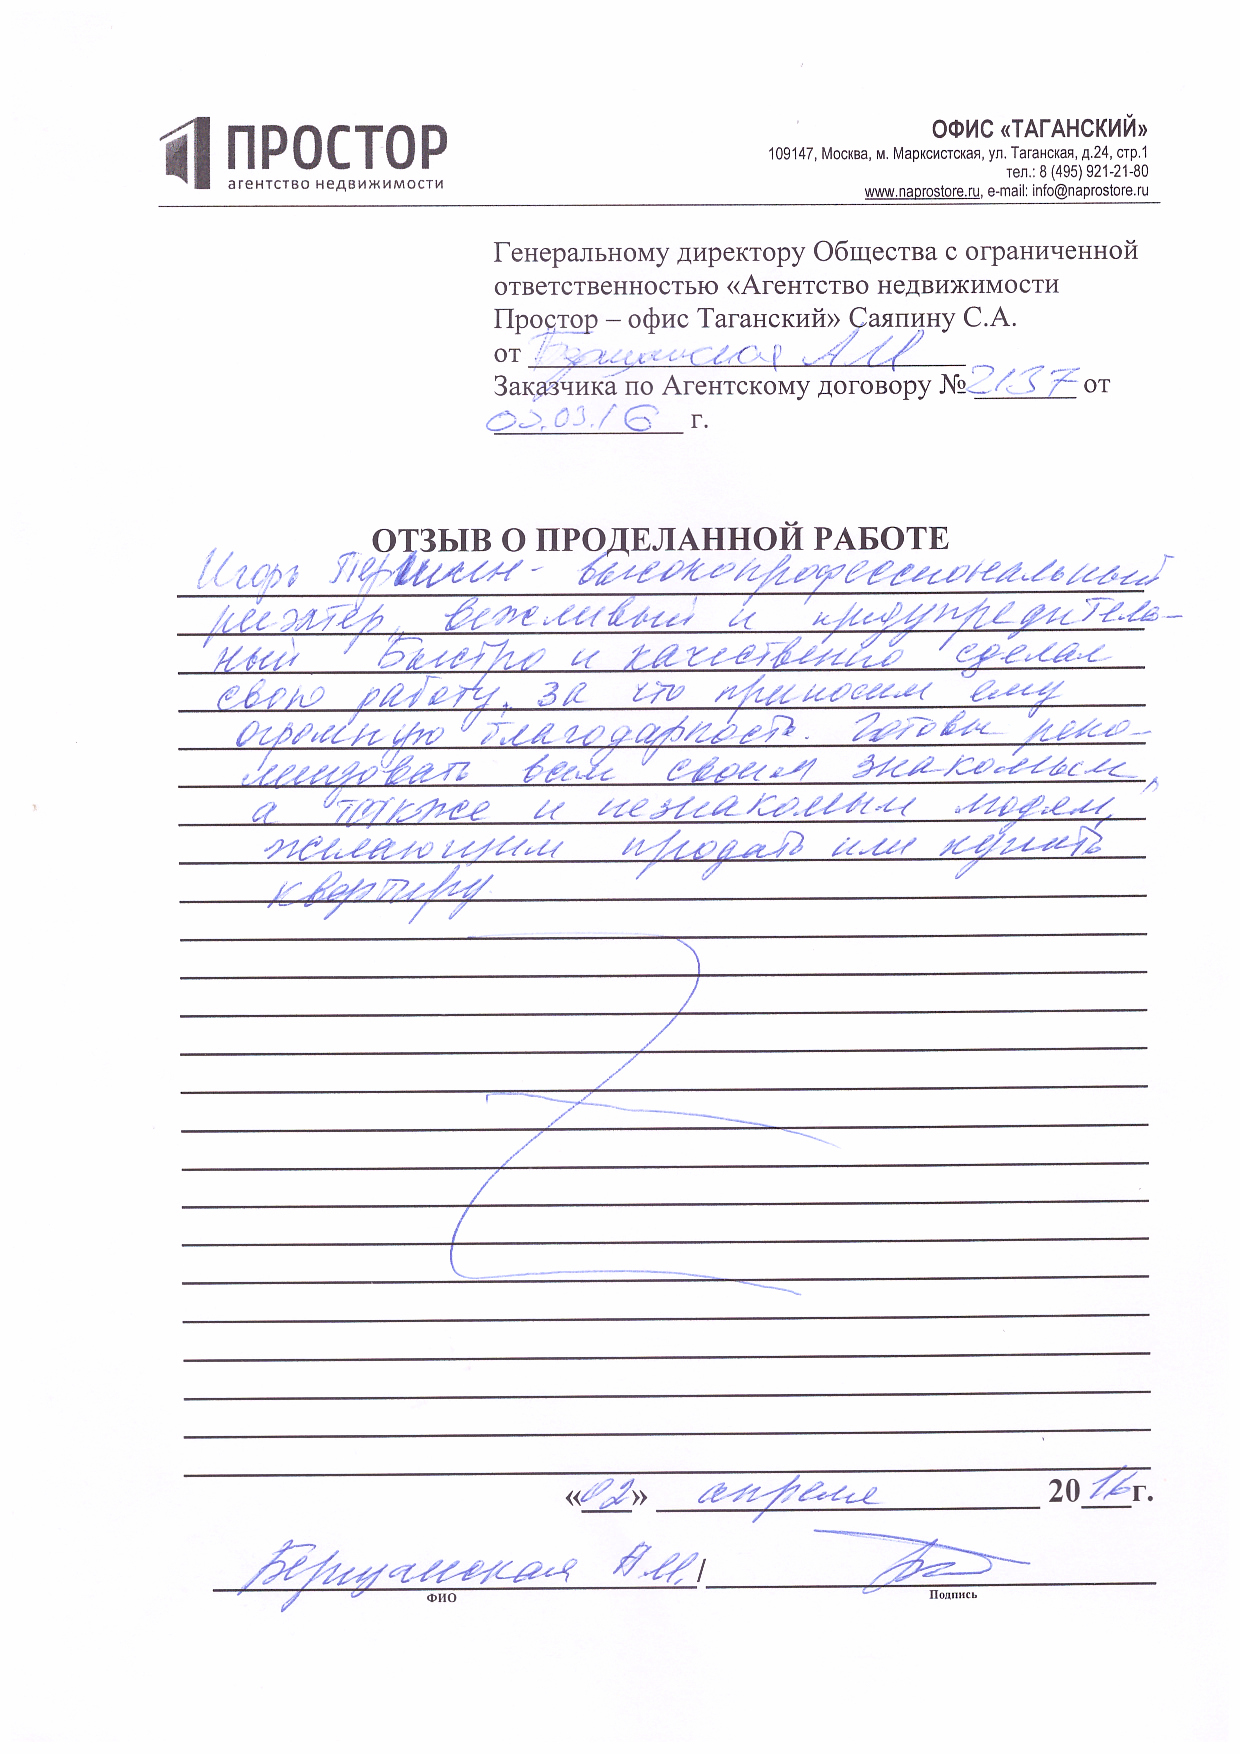 ПРОСТОР
агентство недвижимости
ОФИС «ТАГАНСКИЙ»
109147, Москва, м. Марксистская, ул. Таганская, д.24, стр.1
тел.: 8 (495) 921-21-80
www.naprostore.ru, e-mail: info@naprostore.ru
Генеральному директору Общества с ограниченной
ответственностью «Агентство недвижимости
Простор – офис Таганский» Саяпину С.А.
от
Заказчика по Агентскому договору № 2137 от
г.
ОТЗЫВ О ПРОДЕЛАННОЙ РАБОТЕ
Игорь Першин - высокопрофессиональный
риэлтер, вежливый и предупредитель-
ный Быстро и качественно сделал
свою работу, за что приносим ему
огромную благодарность. Готовы реко-
мендовать всем своим знакомым,
а также и незнакомым людям,
желающим продать или купить
квартиру
«02» апреля 2016г.
А.И. /
ФИО
Подпись